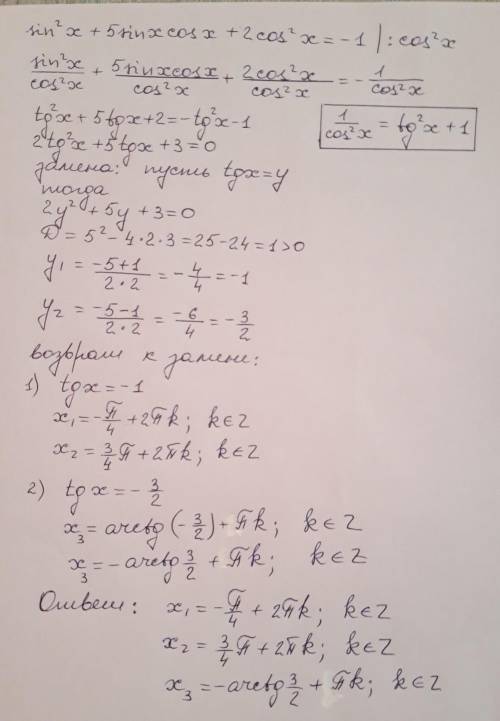 sin²x + 5sinx cosx + 2cos²x = -1 | : cos²x
sin²x/cos²x + 5sinxcosx/cos²x + 2cos²x/cos²x = - 1/cos²x
tg²x + 5tgx + 2 = -tg²x - 1
1/cos²x = tg²x + 1
2tg²x + 5tgx + 3 = 0
замена: пусть tgx = y
тогда
2y² + 5y + 3 = 0
D = 5² - 4·2·3 = 25 - 24 = 1 > 0
y₁ = (-5+1)/(2·2) = -4/4 = -1
y₂ = (-5-1)/(2·2) = -6/4 = -3/2
возврат к замене:
1) tgx = -1
x₁ = -π/4 + 2πk; k∈Z
x₂ = 3/4π + 2πk; k∈Z
2) tgx = -3/2
x₃ = arctg(-3/2) + πk; k∈Z
x₃ = -arctg 3/2 + πk; k∈Z
Ответ: x₁ = -π/4 + 2πk; k∈Z
x₂ = 3/4π + 2πk; k∈Z
x₃ = -arctg 3/2 + πk; k∈Z